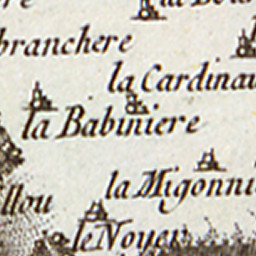 branchere
la Cardinau
la Babiniere
la Migonni
llou
le Noyer